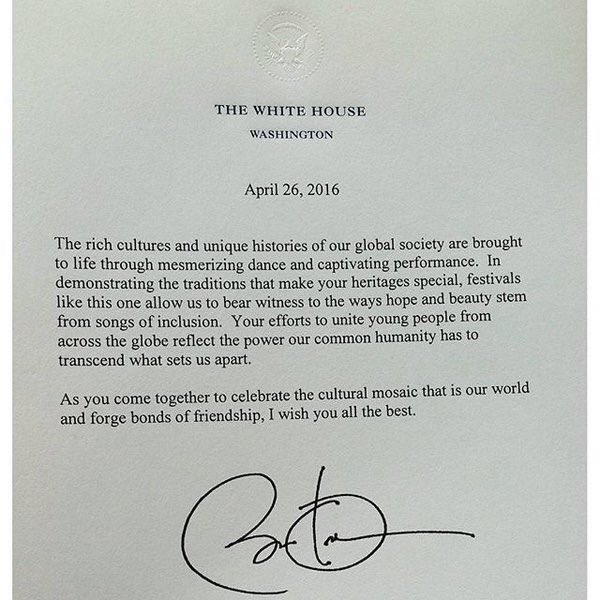 THE WHITE HOUSE
WASHINGTON
April 26, 2016
The rich cultures and unique histories of our global society are brought
to life through mesmerizing dance and captivating performance. In
demonstrating the traditions that make your heritages special, festivals
like this one allow us to bear witness to the ways hope and beauty stem
from songs of inclusion. Your efforts to unite young people from
across the globe reflect the power our common humanity has to
transcend what sets us apart.
As you come together to celebrate the cultural mosaic that is our world
and forge bonds of friendship, I wish you all the best.